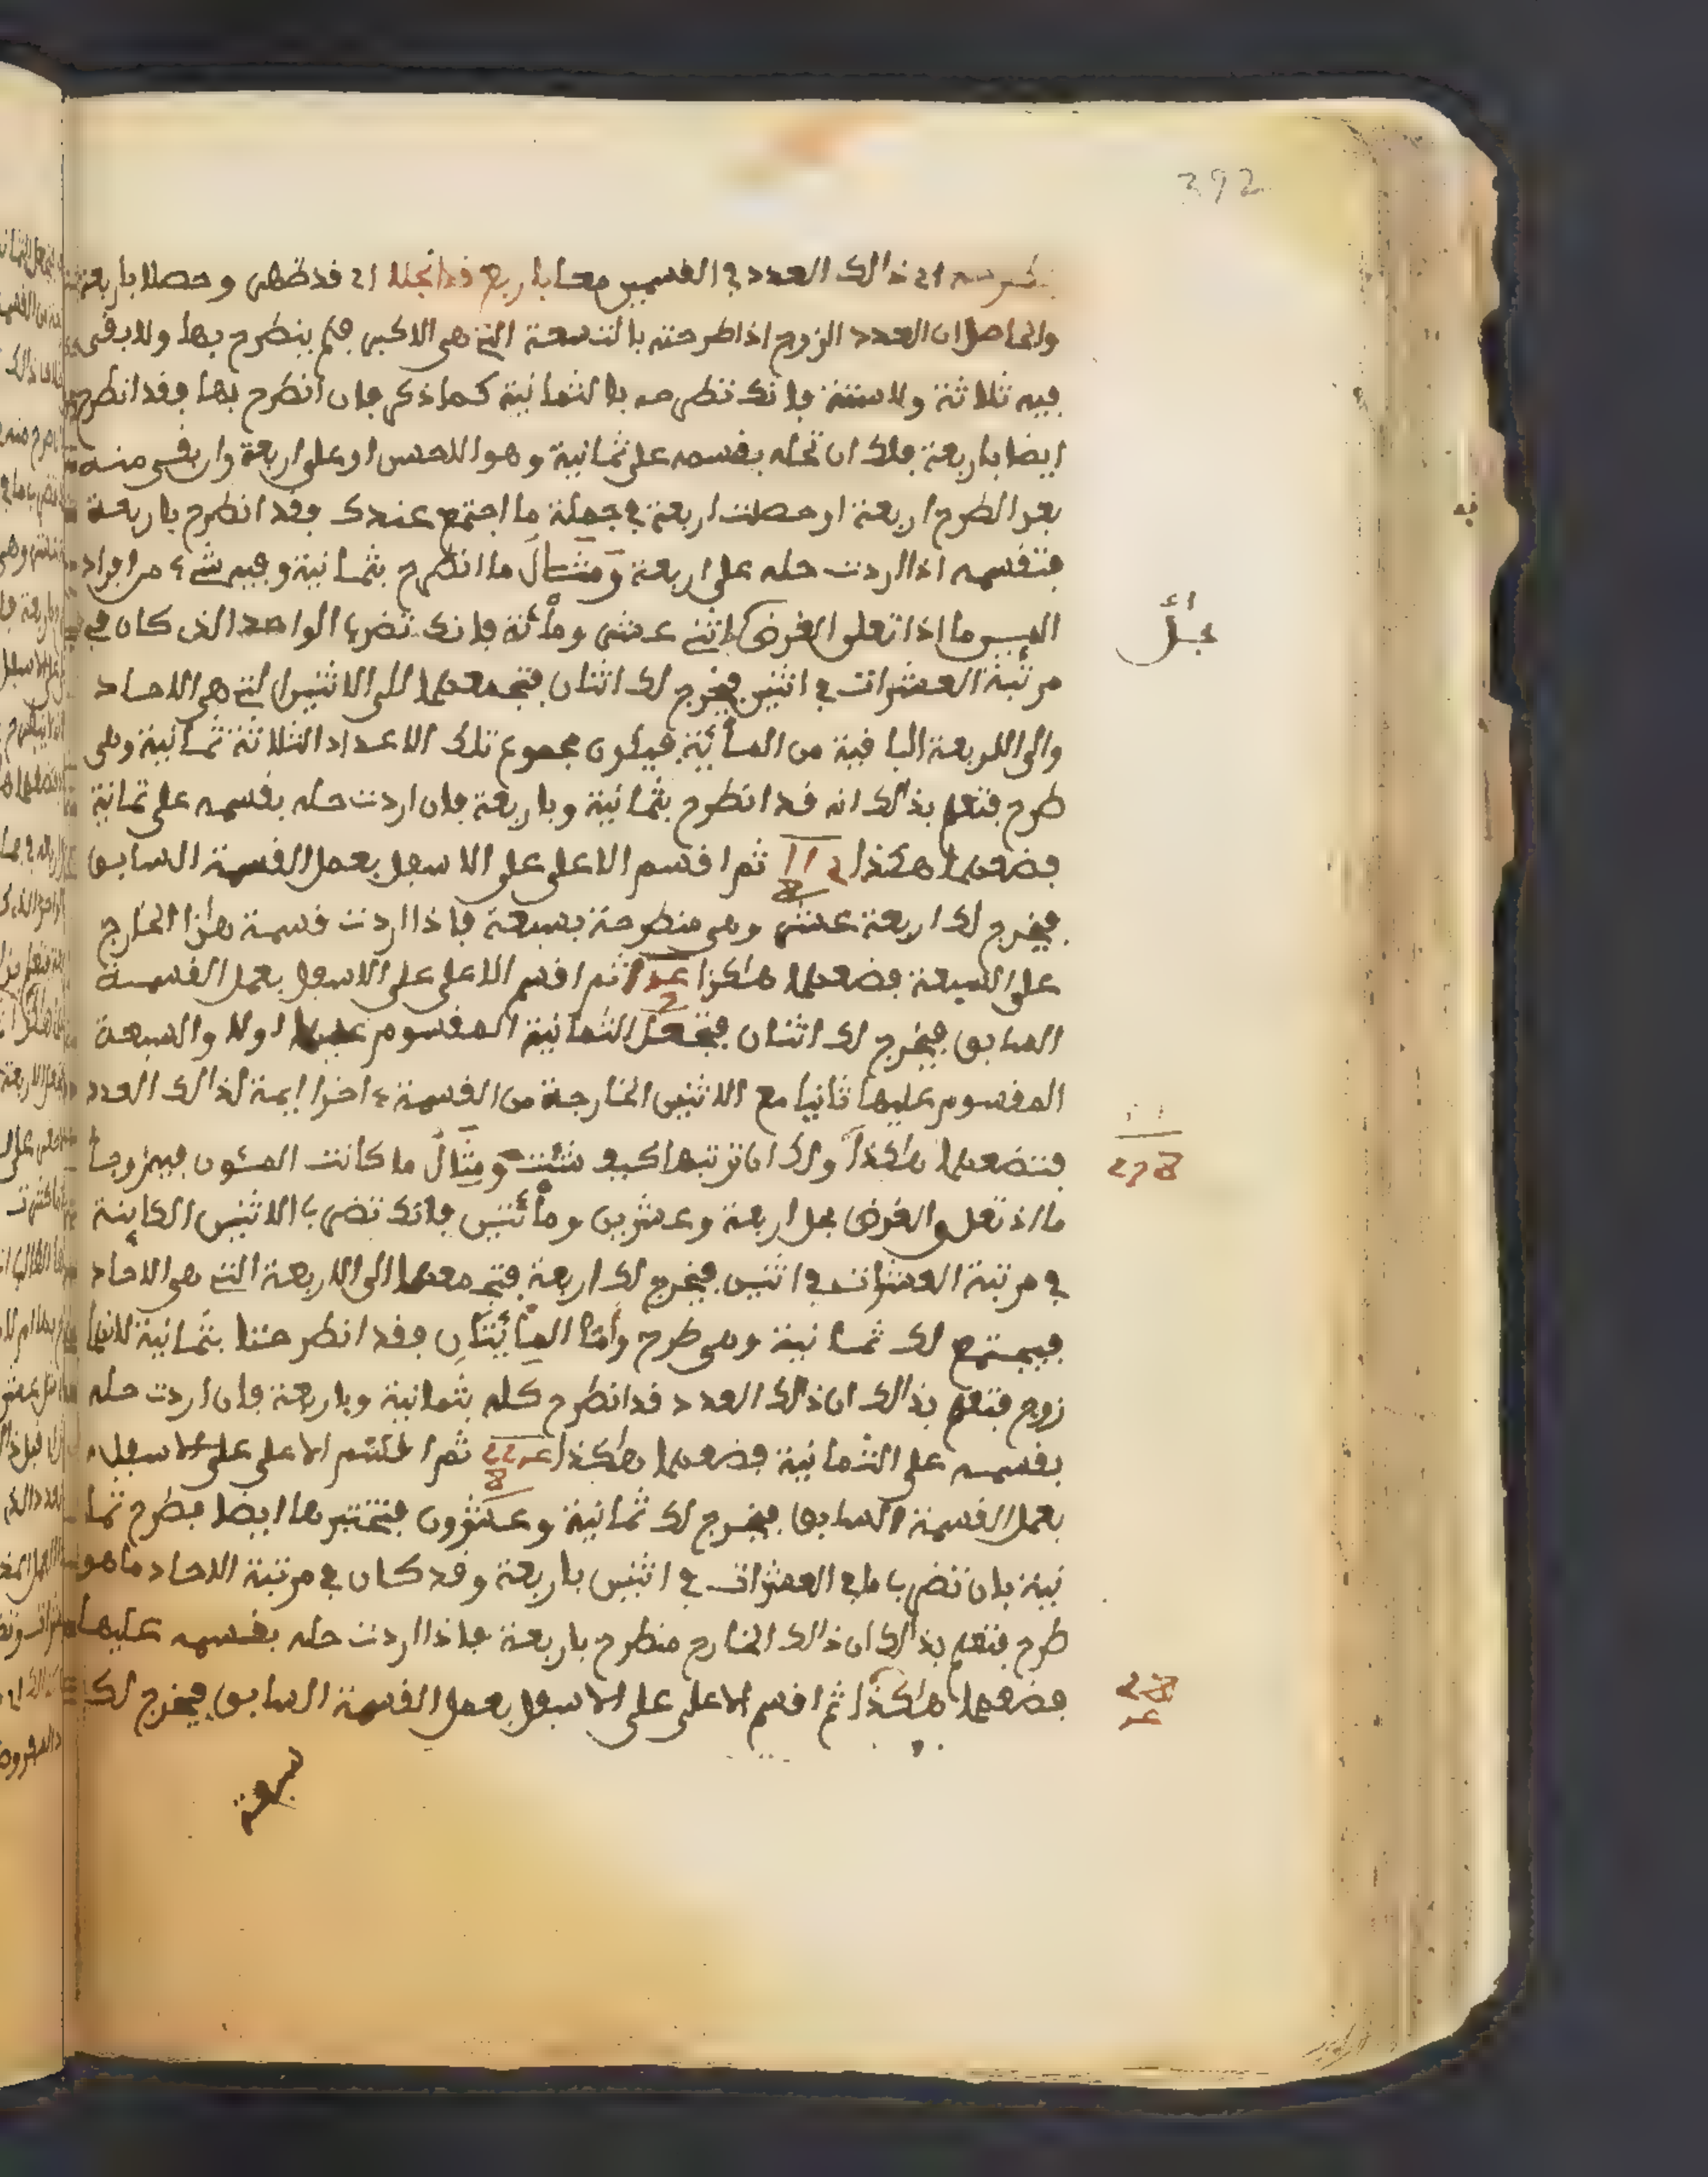 392
اى ذالك العدد في القسمين معا باربع قد انجلا اى قد ظهر وحصلا باربعة
والحاصل ان العدد الزوج اذا طرحته بالتسعة التي هي الاكبر فلم ينطرح بها ولا بقى
فيه ثلاثة ولا ستة فانك تطرحه بالثمانية كما ذكر فان انطرح بها فقد انطرح
ايضا باربعة فلك ان تحله بقسمه على ثمانية وهو الاحسن او على اربعة وان بقى منه
بعد الطرح اربعة او حصلت اربعة في جملة ما اجتمع عندك فقد انطرح باربعة
فتقسمه اذا اردت حله على اربعة ومثال ما انطرح بثمانية وفيه شىء من افراد
الميين ما اذا تعلق الغرض اثني عشر ومائة فانك تضرب الواحد الذى كان في
بحل
مرتبة العشرات في اثنين فيخرج لك اثنان فتجمعهما الى الاثنين التي هي الاحاد
والى الاربعة الباقية من المائة فيكون مجموع تلك الاعداد الثلاثة ثمانية وهى
طرح فتعلم بذالك انه قد انطرح بثمانية وباربعة فان اردت حله بقسمه على ثمانية
فضعهما هكذا ثم اقسم الاعلى على الاسفل بعمل القسمة السابق
فيخرج لك اربعة عشر وهى منطرحة بسبعة فاذا اردت قسمة هذا الخارج
على السبعة فضعهما هكذا ثم اقسم الاعلى على الاسفل بعمل القسمة
السابق فيخرج لك اثنان فتجعل الثمانية المقسوم عليها اولا والسبعة
المقسوم عليها ثانيا مع الاثنين الخارجة من القسمة ايمة لذالك العدد
فتضعهما هاكذا ولك ان ترتبها كيف شئت ومثال ما كانت المئون فيه زوجا
ما اذ تعلق الغرض بحل اربعة وعشرين ومائتين فانك تضرب الاثنين الكاينة
في مرتبة العشرات في اثنين فيخرج لك اربعة فتجمعهما الى الاربعة التي هي الاحاد
فيجتمع لك ثمانية وهى طرح واما المائتان فقد انطرحتا بثمانية لانهما
زوج فتعلم بذالك ان ذلك العدد قد انطرح كله بثمانية وباربعة فان اردت حله
بقسمه على الثمانية فضعهما هاكذا ثم اقسم الاعلى على الاسفل
بعمل القسمة السابق فيخرج لك ثمانية وعشرون فتختبرها ايضا بطرح ثما
نية بان تضرب ما في العشرات في اثنين باربعة وقد كان في مرتبة الاحاد ما هو
طرح فتعلم بذالك ان ذالك الخارج منطرح باربعة فاذا اردت حله بقسمه عليها
فضعهما هاكذا ثم اقسم الاعلى على الاسفل بعمل القسمة السابق فيخرج لك
سبعة